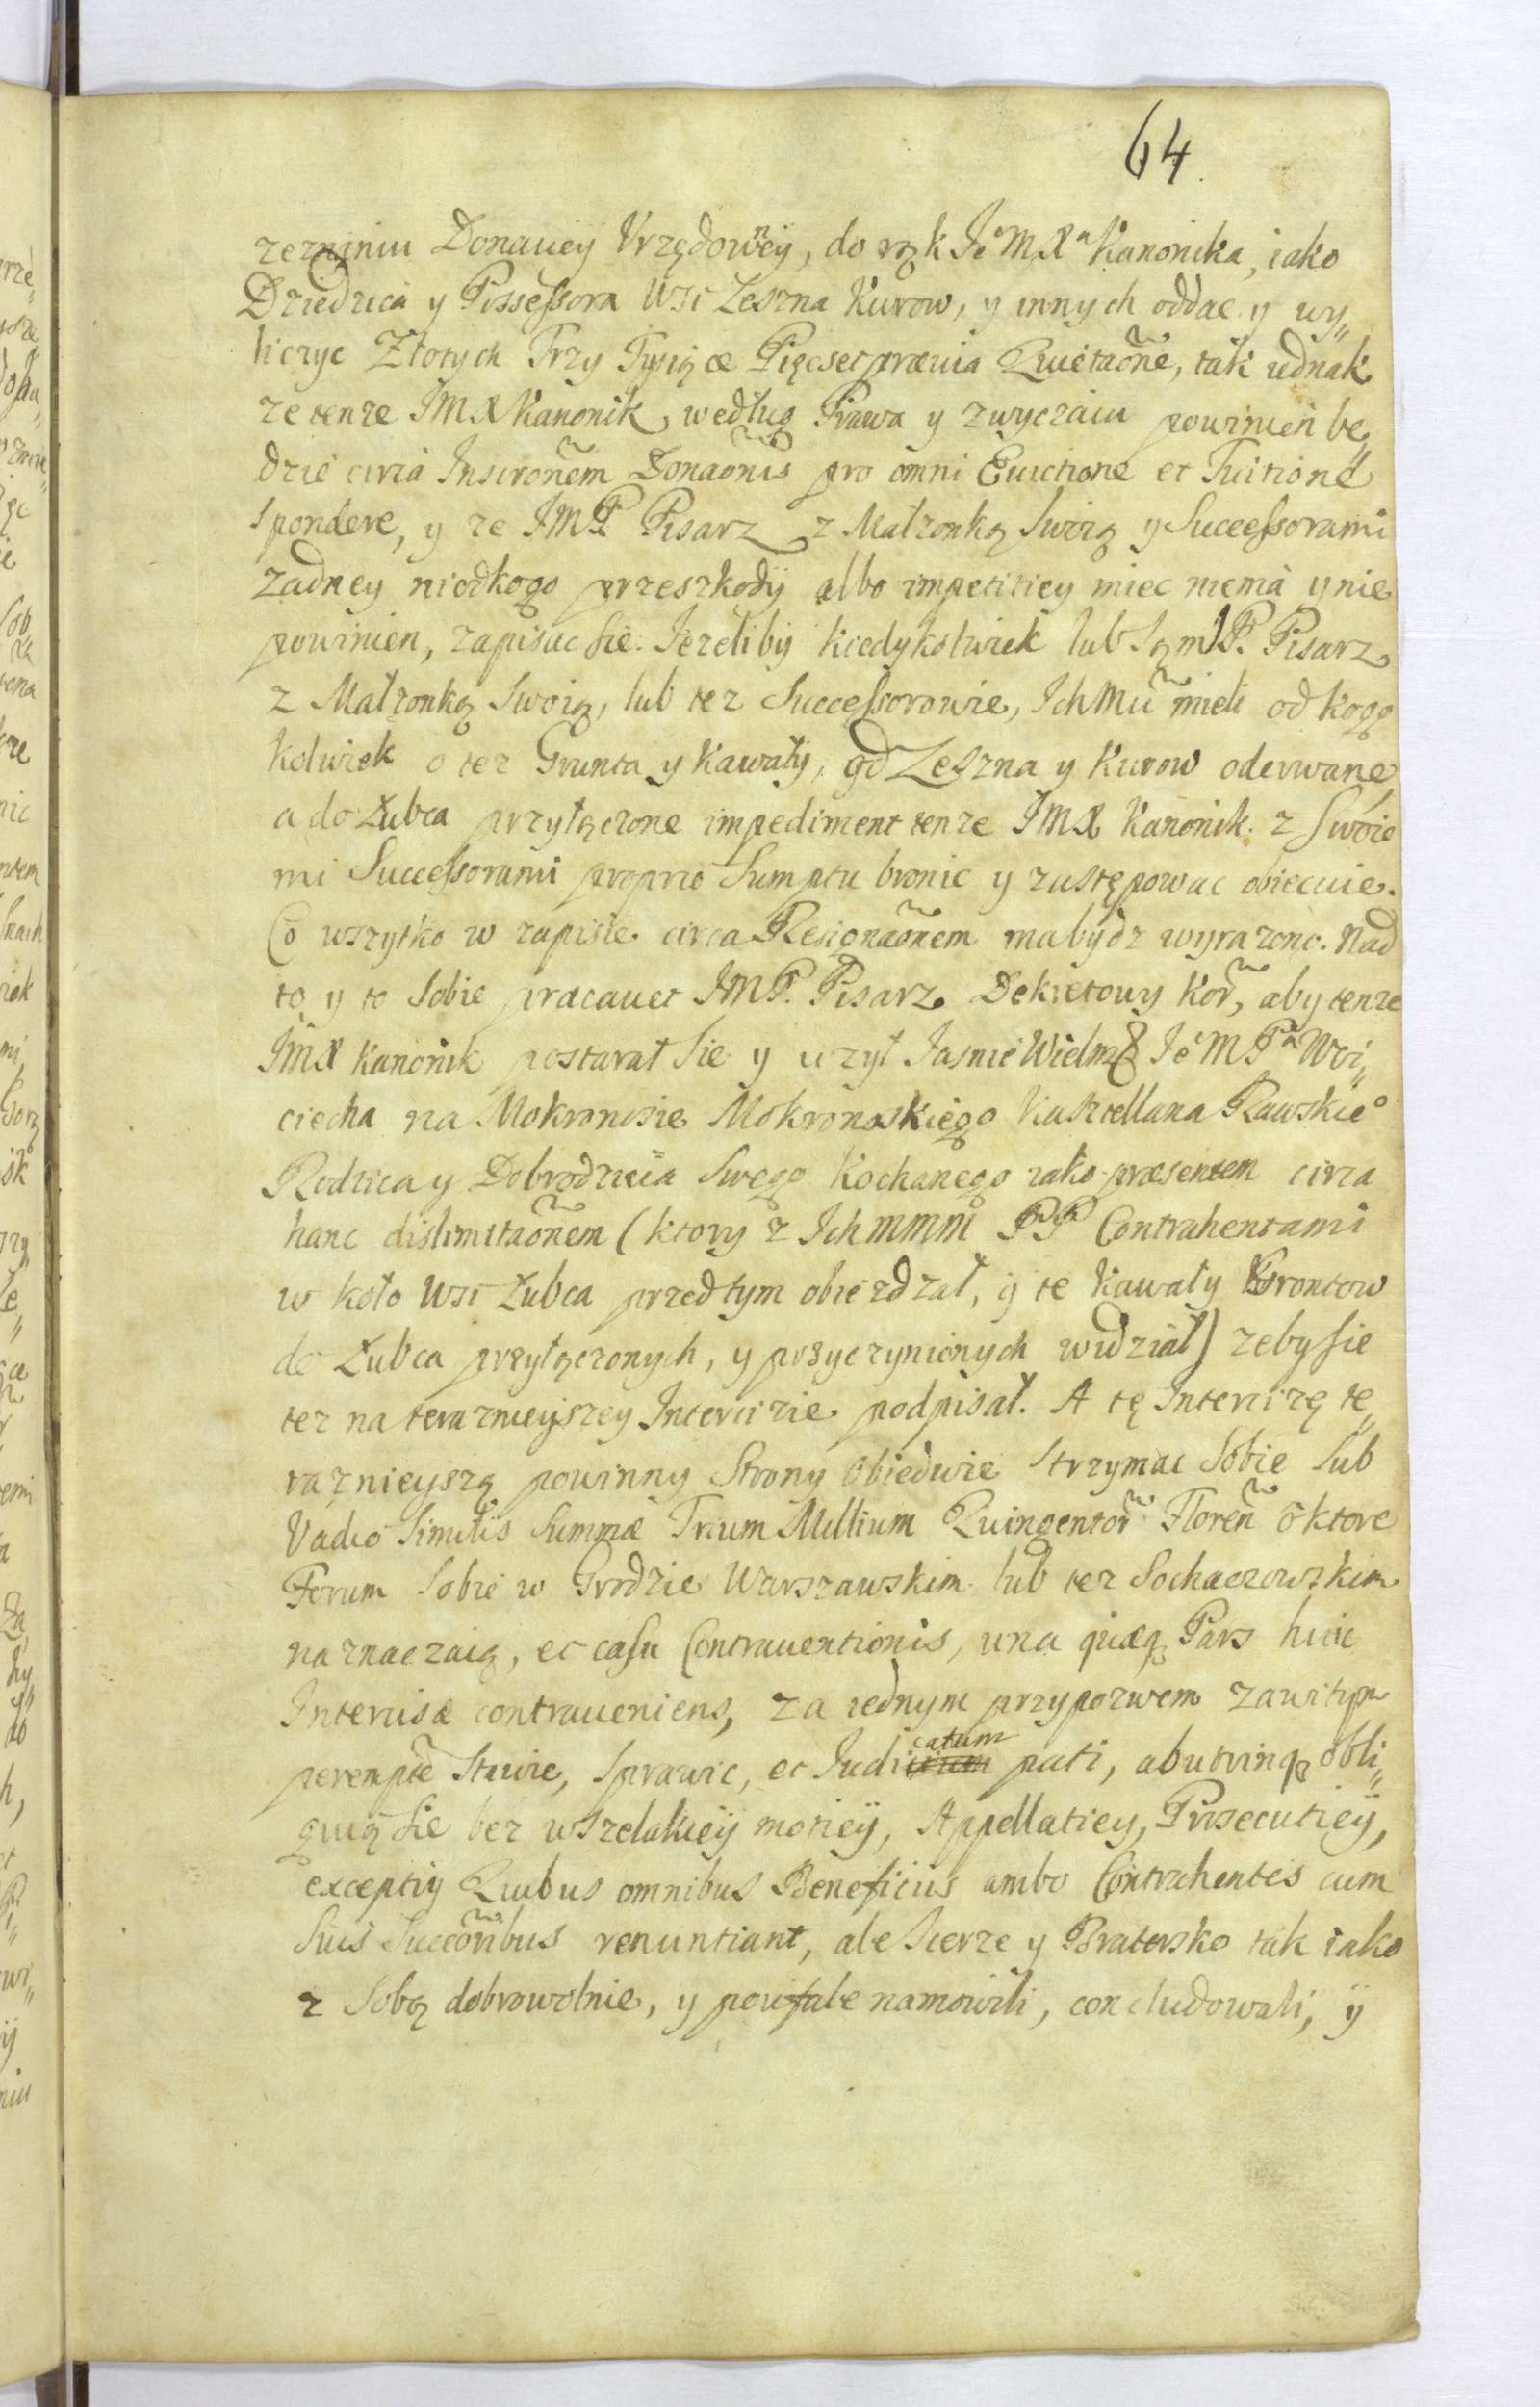 64.
zeznaniu Donauey Vrzędowney, do rąk Je°M Xª Kanonika, iako
Dziedzica y Possessora Wsi Leszna Kurow, y innych oddac y wy„
liczyc Złotych Trzy Tysiące Pięcset prævia Quietaõne, tak iednak
ze tenze JMX Kanonik, według Prawa y zwyczaiu powinien be„
dzie circa Inscroñem Donaõnis pro omni Euictione et Tuitione
spondere, y ze JMP Pisarz z Małzonką Swoią y Successorami
zadney niodkogo przeszkody albo impetitiey miec niema y nie
powinien, zapisac sie. Jezeliby kiedykolwiek lub Sam JP. Pisarz
z Małzonką Swoią, lub tez Successorowie, Ichmũ mieli od kogo
kolwiek o tez Grunta y Kawały, od Leszna y Kurow oderwane
a do Łubca przyłączone impediment tenze JMX Kanonik. z Swoie
mi Successorami proprio Sumptu bronic y zastępowac obiecuie.
Co wszytko w zapisie circa Resignaõnem ma bydz wyrazono. Nad
to y to Sobie præcauet JMP. Pisarz Dekretowy Kor̃, aby tenze
JMX Kanonik postarał sie y uzył Jasnie Wielmo Je°M Pª Woi„
ciecha na Mokronosie Mokronoskiego Kasztellana Rawskie°
Rodzica y Dobrodzieia Swego Kochanego iako præsentem circa
hanc dislimitaõnem (ktory z Ichmmm PP Contrahentami
w koło Wsi Łubca przedtym obiezdzał, y te Kawały Grontow
do Łubca przyłączonych, y przyczynionych widział) zeby sie
tez na terazniejszey Intercizie podpisał. A tę Intercizę te„
raznieyszą powinny Strony obiedwie strzymac Sobie Sub
Vadio Similis Summæ Trium Millium Quingentor̃ Floreñ o ktore
Forum sobie w Grodzie Warszawskim lub tez Sochaczowskim
naznaczaią, et casu Contrauentionis, una quæq Pars huic
Intercisæ contraueniens, za iednym przypozwem zawitym
perempte Stawic, Sprawic, et Judicatum pati, ab utrinq obli„
guią sie bez wszelakiey motiey, Appellatiey, Prosecutiey,
exceptiy Quibus omnibus Beneficiis ambo Contrahentes cum
Suis Succõribus renuntiant, ale Sczerze y Bratersko tak iako
z Sobą dobrowolnie, y poufale namowili, concludowali, y